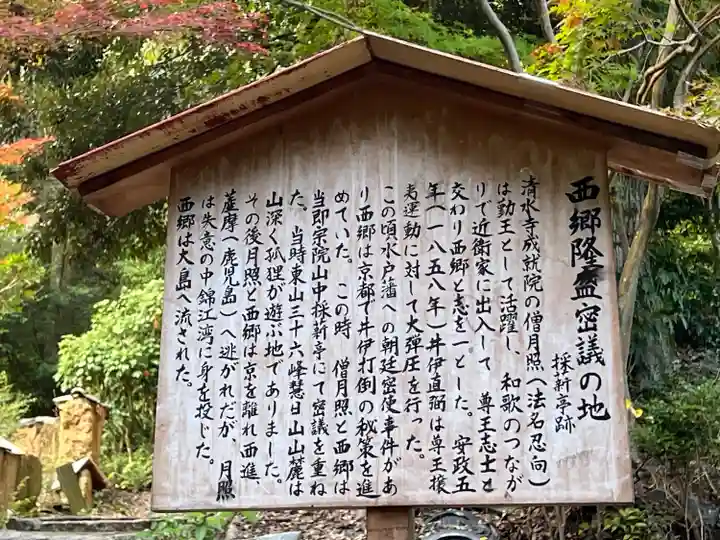 西郷隆盛密議の地
採新亭跡
清水寺成就院の僧月照(法名忍向)
は勤王として活躍し、和歌のつなが
りで近衛家に出入して 尊王志士と
交わり西郷と志を一とした。安政五
年(一八五八年)井伊直弼は尊王攘
夷運動に対して大弾圧を行った。
この頃水戸藩への朝廷密使事件があ
り西郷は京都で井伊打倒の秘策を進
めていた。この時 僧月照と西郷は
当即宗院山中採新亭にて密議を重ね
た。当時東山三十六峰慧日山山麓は
山深く狐狸が遊ぶ地でありました。
その後月照と西郷は京を離れ西進、
薩摩(鹿児島)へ逃がれだが 月照
は失意の中錦江湾に身を投じた。
西郷は大島へ流された。